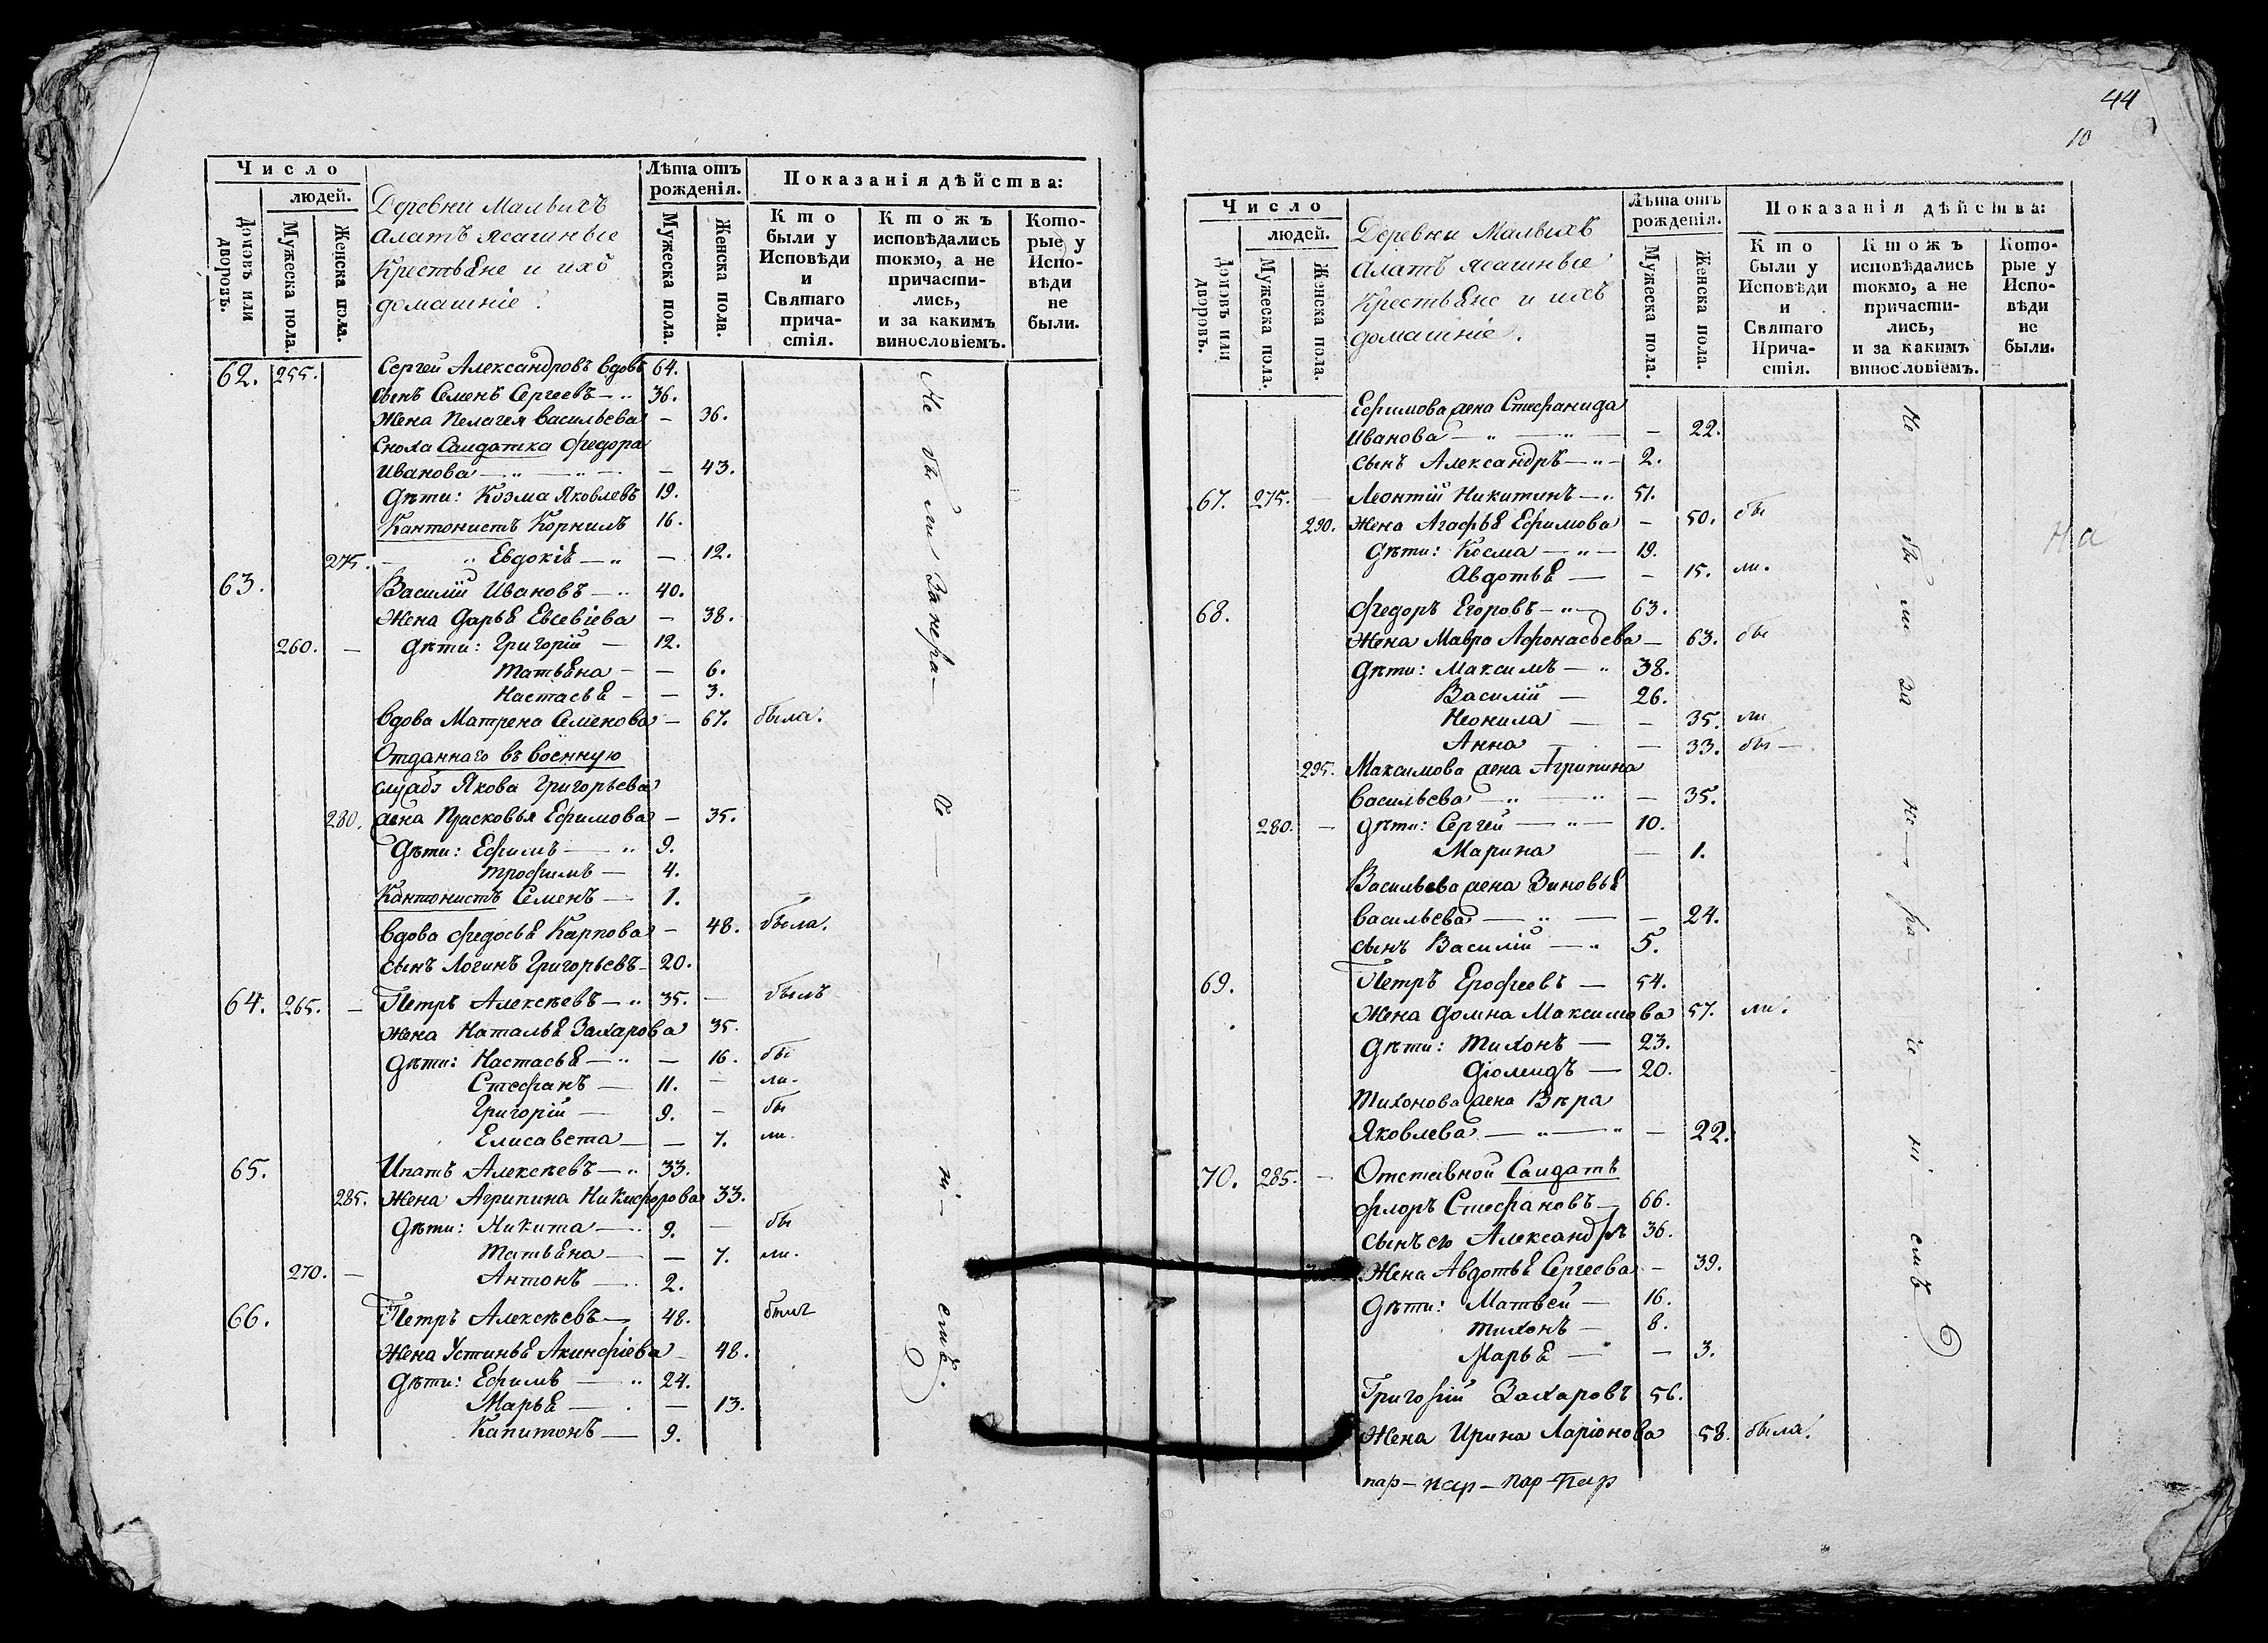 Число
людей.
Домовъ или дворовъ.
Мужеска пола.
Женска пола.
Деревни Малыхъ
Алатъ ясашные
Крестьяне и ихъ
домашніе.
Лѣта отъ
рожденія.
Мужеска пола.
Женска пола.
Показанія дѣйства:
Кто
были у
Исповѣди
и
Святаго
прича-
стія.
Ктожъ
исповѣдались
токмо, а не
причасти-
лись,
и за какимъ
винословіемъ.
Кото-
рые у
Испо-
вѣди
не
были.
62. 255. Сергей Александровъ вдовъ 64.
сынъ Семенъ Сергеевъ — 36.
Жена Пелагея Васильева — 36.
Сноха Салдатка Федора
Иванова — — 43.
Дѣти: Козма Яковлевъ 19.
Кантонистъ Корнилъ 16.
275. — Евдокія — — 12.
63. Василій Ивановъ — 40.
Жена Дарья Евсевіева — 38.
260. — Дѣти: Григорій — 12.
Татьяна — — 6.
Настасья — — 3.
Вдова Матрена Семенова — 67. была.
Отданнаго въ военную
службу Якова Григорьева
280. жена Прасковья Ефимова — 35.
Дѣти: Ефимъ — 9.
Трофимъ — 4.
Кантонистъ Семенъ — 1.
Вдова Федосья Карпова — 48. была.
сынъ Логинъ Григорьевъ — 20.
64. 265. — Петръ Алексѣевъ — 35. — былъ
Жена Наталья Захарова 35.
Дѣти: Настасья — — 16. бы
Стефанъ — 11. — ли.
Григорій — 9. — бы
Елисавета — — 7. ли.
65. Ипатъ Алексѣевъ — 33.
285. Жена Агрипина Никифорова 33.
Дѣти: Никита — 9. — бы
Татьяна — — 7. ли.
270. — Антонъ — 2.
66. Петръ Алексѣевъ — 48. былъ
Жена Устинья Акинфіева — 48.
Дѣти: Ефимъ — 24.
Марья — — 13.
Капитонъ — 9.
Не были за нера— де — ні — емъ.
44
10
Число
людей.
Домовъ или дворовъ.
Мужеска пола.
Женска пола.
Деревни Малыхъ
Алатъ ясашные
Крестьяне и ихъ
домашніе.
Лѣта отъ
рожденія.
Мужеска пола.
Женска пола.
Показанія дѣйства:
Кто
были у
Исповѣди
и
Святаго
Прича-
стія.
Ктожъ
исповѣдались
токмо, а не
причасти-
лись,
и за какимъ
винословіемъ.
Кото-
рые у
Испо-
вѣди
не
были.
Ефимова жена Стефанида
Иванова — — — 22.
сынъ Александръ — 2.
67. 275. — Леонтій Никитинъ — 51.
290. Жена Агафья Ефимова — 50. бы
Дѣти: Косма — 19.
Авдотья — — 15. ли.
68. Федоръ Егоровъ — 63.
Жена Мавра Афонасьева — 63. бы
Дѣти: Максимъ — 38.
Василій — 26.
Неонила — — 35. ли
Анна — — 33. бы —
295. Максимова жена Агрипина
Васильева — — — 35.
280. — Дѣти: Сергей — 10.
Марина — 1.
Васильева жена Зиновья
Васильева — — — 24.
сынъ Василій — 5.
69. Петръ Ерофеевъ — 54.
Жена Домна Максимова 57. ли.
Дѣти: Тихонъ — 23.
Діомидъ — 20.
Тихонова жена Вѣра
Яковлева — — — 22.
70. 285. — Отставной Салдатъ
Флоръ Стефановъ — 66.
сынъ ею Александръ 36.
Жена Авдотья Сергеева — 39.
Дѣти: Матвей — 16.
Тихонъ — 8.
Марья — — 3.
Григорій Захаровъ 56.
Жена Ирина Ларіонова 58. была.
Не бы ли за не— ра— де — ні — емъ
На
пар — пар — пар — пар